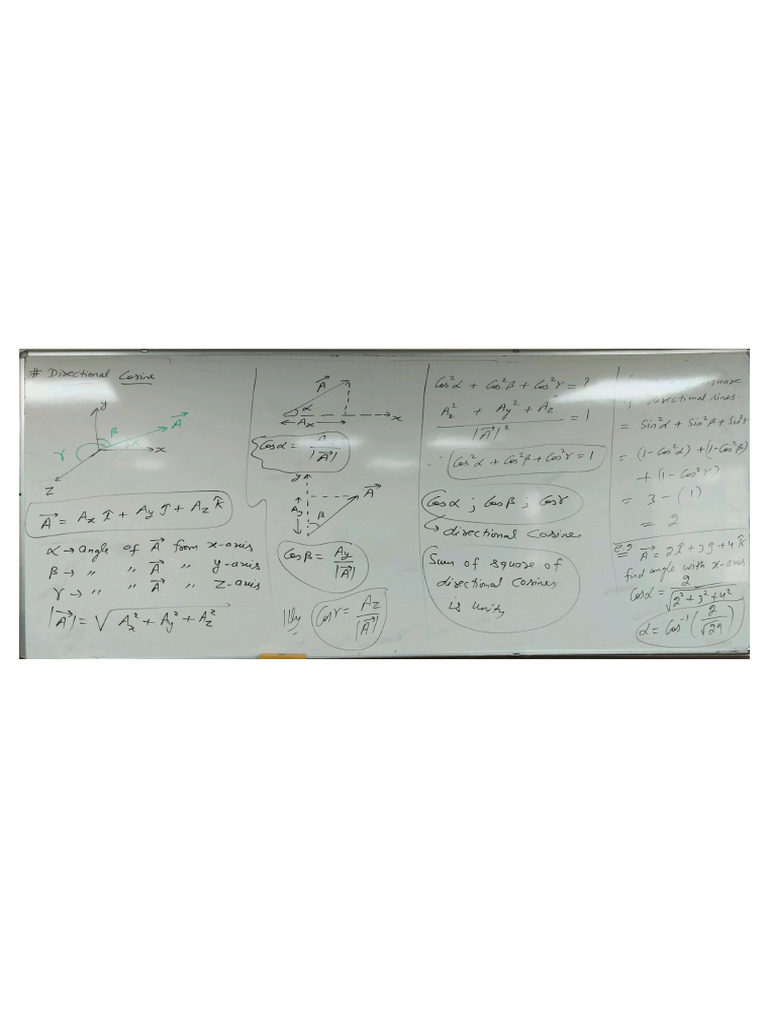 # Directional Cosine
y
A⃗
β
α
γ
x
z
A⃗ = Ax î + Ay ĵ + Az k̂
α → angle of A⃗ from x-axis
β → " " A⃗ " y-axis
γ → " " A⃗ " z-axis
|A⃗| = √(Ax² + Ay² + Az²)
A⃗
α
Ax
x
Cosα = / |A⃗|
y
A⃗
Ay
β
Cosβ = Ay / |A⃗|
|||ly Cosγ = Az / |A⃗|
Cos²α + Cos²β + Cos²γ = ?
(Ax² + Ay² + Az²) / |A⃗|² = 1
∴ Cos²α + Cos²β + Cos²γ = 1
Cosα ; Cosβ ; Cosγ
↳ directional Cosines
Sum of square of
directional Cosines
is unity
directional sines.
= Sin²α + Sin²β + Sin²γ
= (1-Cos²α) + (1-Cos²β)
+ (1-Cos²γ)
= 3 - (1)
= 2
e.g A⃗ = 2î + 3ĵ + 4k̂
find angle with x-axis
Cosα = 2 / √(2² + 3² + 4²)
α = Cos⁻¹(2 / √29)